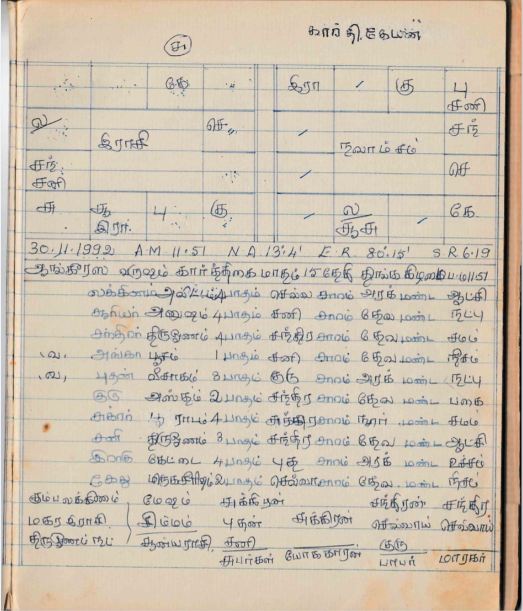 கார்த்திகேயன்
கே இரா / கு பு
சனி
ல/ செ / சந்
இராசி நவாம்சம்
சந் / செ
சனி
சு சூ பு கு / ல/ / கே
இரா
30.11.1992 A M 11.51 N A.13'4' E.R. 80.15' S R 6.19
ஆங்கிரஸ வருஷம் கார்த்திகை மாதம் 15 தேதி திங்ககிழமை 11.51
லக்கினம் அவிட்டம் 4 பாதம் செவ்வ சாரம் அரக் மண்ட ஆட்சி
சூரியர் அனுஷம் 4 பாதம் சனி சாரம் தேவ மண்ட நட்பு
சந்திரர் திருஓணம் 4 பாதம் சந்திர சாரம் தேவ மண்ட சமம்
வ, அங்கா பூசம் 1 பாதம் சனி சாரம் தேவ மண்ட நீசம்
வ, புதன் விசாகம் 3 பாதம் குரு சாரம் அரக் மண்ட நட்பு
குரு அஸ்தம் 2 பாதம் சந்திர சாரம் தேவ மண்ட பகை
சுகரர் பூராடம் 4 பாதம் சுக்கிர சாரம் மண்ட சமம்
சனி திருஓணம் 3 பாதம் சந்திர சாரம் தேவ மண்ட ஆட்சி
இராகு கேட்டை 4 பாதம் புத சாரம் அரக் மண்ட உச்சம்
கேது 2 பாதம் செவ்வா சாரம் தேவ. மண்ட நீசம்
கும்பலக்கினம் மேஷம் சுக்கிரன் சந்திரன் சந்திர
மகரராசி சிம்மம் புதன் சுக்கிரன் செவ்வாய் செவ்வாய்
திருஓணம் நட் சூன்யராசி சனி குரு
சுபர்கள் யோககாரன் பாபர் மாரகர்